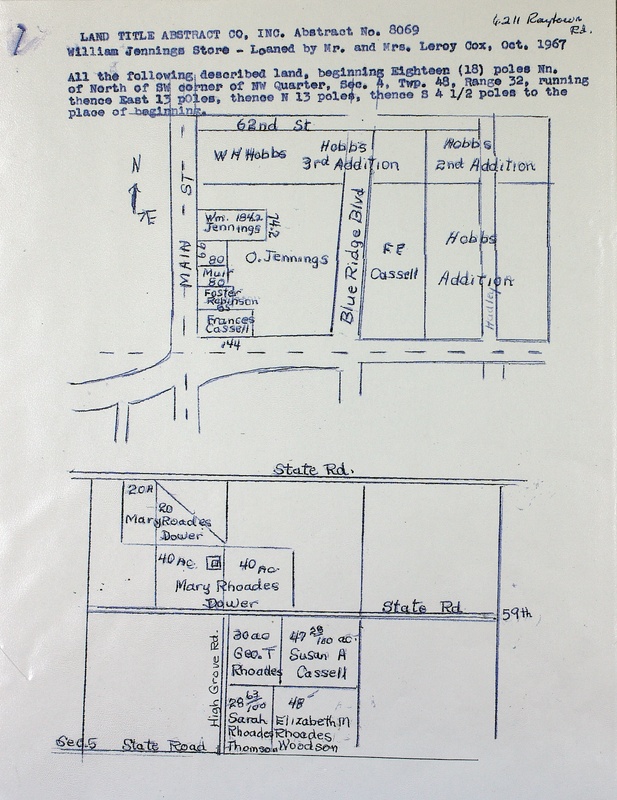 6211 Raytown Rd.
LAND TITLE ABSTRACT CO, INC. Abstract No. 8069
William Jennings Store - Loaned by Mr. and Mrs. Leroy Cox, Oct. 1967
All the following described land, beginning Eighteen (18) poles Nn.
of North of SW corner of NW Quarter, Sec. 4, Twp. 48, Range 32, running
thence East 13 poles, thence N 13 poles, thence S 4 1/2 poles to the
place of beginning.
62nd St
W H Hobbs
Hobb's
3rd Addition
Hobbs
2nd Addition
N
E
MAIN ST
Wm. 184.2
Jennings
74.2
99
80
Muir
80
Foster
Robinson
85
Frances
Cassell
144
O. Jennings
Blue Ridge Blvd
Cassell
Hobbs
Addition
State Rd.
20A
20
Mary Roades
Dower
40 Ac.
40 Ac.
Mary Rhoades
Dower
State Rd
59th
High Grove Rd.
30 ac
Geo. T
Rhoades
47 28/100 ac.
Susan A
Cassell
28 63/100
Sarah
Rhoades
Thomson
48
Elizabeth M
Rhoades
Woodson
Sec. 5 State Road